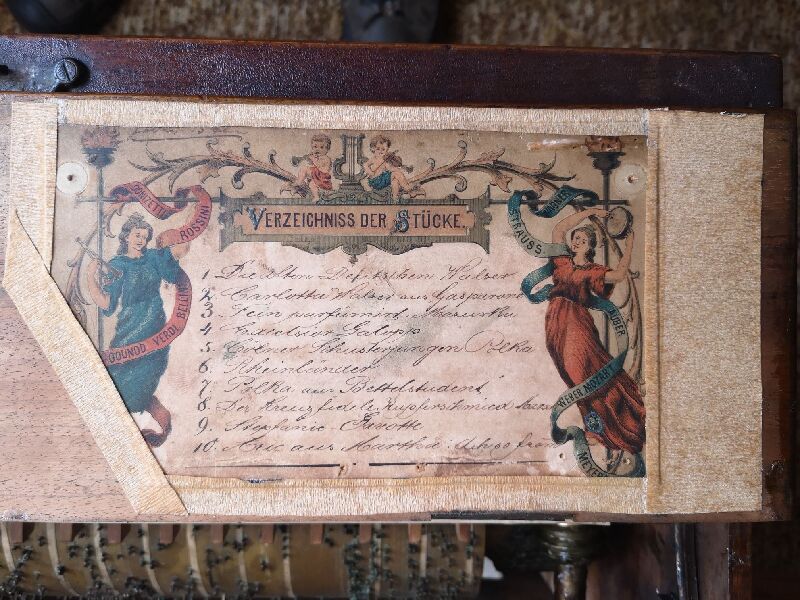 VERZEICHNISS DER STÜCKE.
DONIZETTI ROSSINI
GOUNOD VERDI BELLINI
STRAUSS
AUBER
WEBER MOZART
MEYERB
1 Walzer
2. Carlotta Walzer aus Gasparone
3 Fein parfümirt Mazurka
4 Excelsior Galopp
5. Cölner Schusterjungen Polka
6 Rheinländer
7 Polka aus Bettelstudent
8. Der kreuzfidele Kupferschmied
9. Stephanie-Gavotte
10. Arie aus Martha: Ach so from